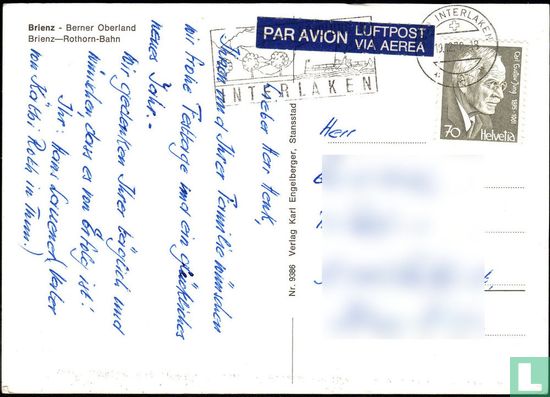 Brienz - Berner Oberland
Brienz—Rothorn-Bahn
PAR AVION
LUFTPOST
VIA AEREA
INTERLAKEN
INTERLAKEN
Carl Gustav Jung 1875-1961
70 Helvetia
Nr. 9386 Verlag Karl Engelberger, Stansstad
Herr
Lieber Herr Henk,
Ihnen und Ihrer Familie wünschen
wir frohe Festtage und ein glückliches
neues Jahr.-
Wir gedenken Ihrer täglich und
wünschen, dass es von Erfolg ist!
Ihr: Hans Lauener (Vater
von Käthi Roth in Thun.)
L